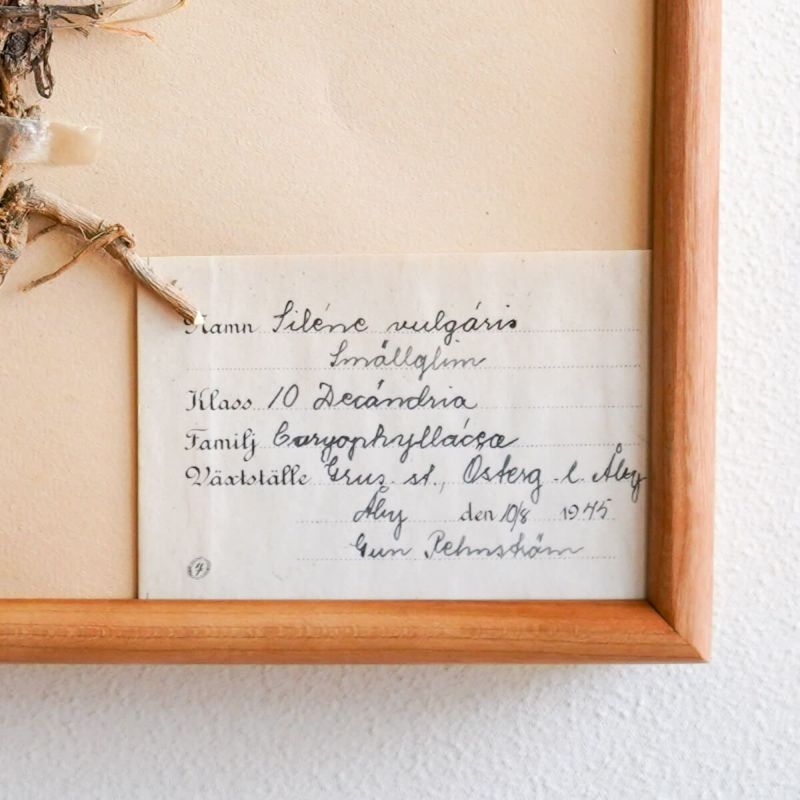 Namn Siléne vulgáris
Smällglim
Klass 10 Decándria
Familj Caryophylláceæ
Växtställe Grus. st., Österg. l. Åby
Åby den 10/8 1945
Gun Rehnström